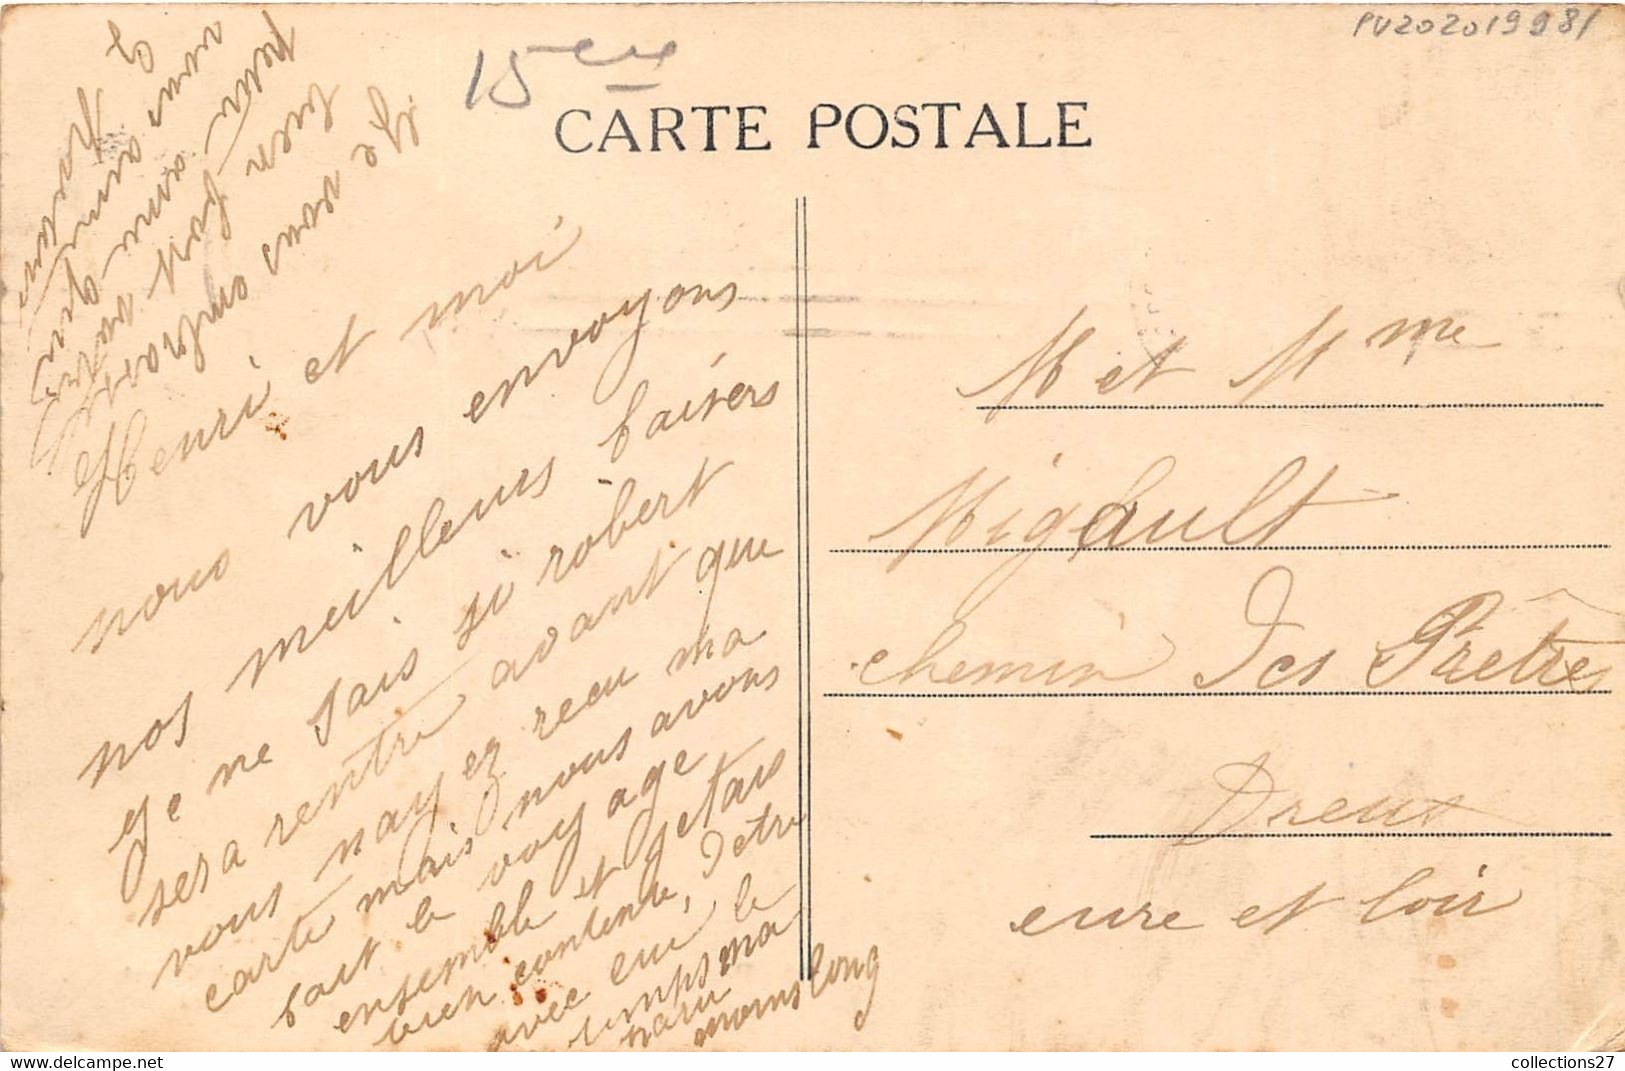 PV20201998/
15eme
CARTE POSTALE
Henri et moi
nous vous envoyons
nos meilleurs baisers
Je ne sais si robert
sera rentré avant que
vous nayez recu ma
carte mais nous avons
fait le voyage
ensemble et jetais
bien contente, detre
avec eux le
temps ma
paru
moins long
M et Mme
Migault
chemin des Prêtres
Dreux
eure et loir
Je vous
collections27